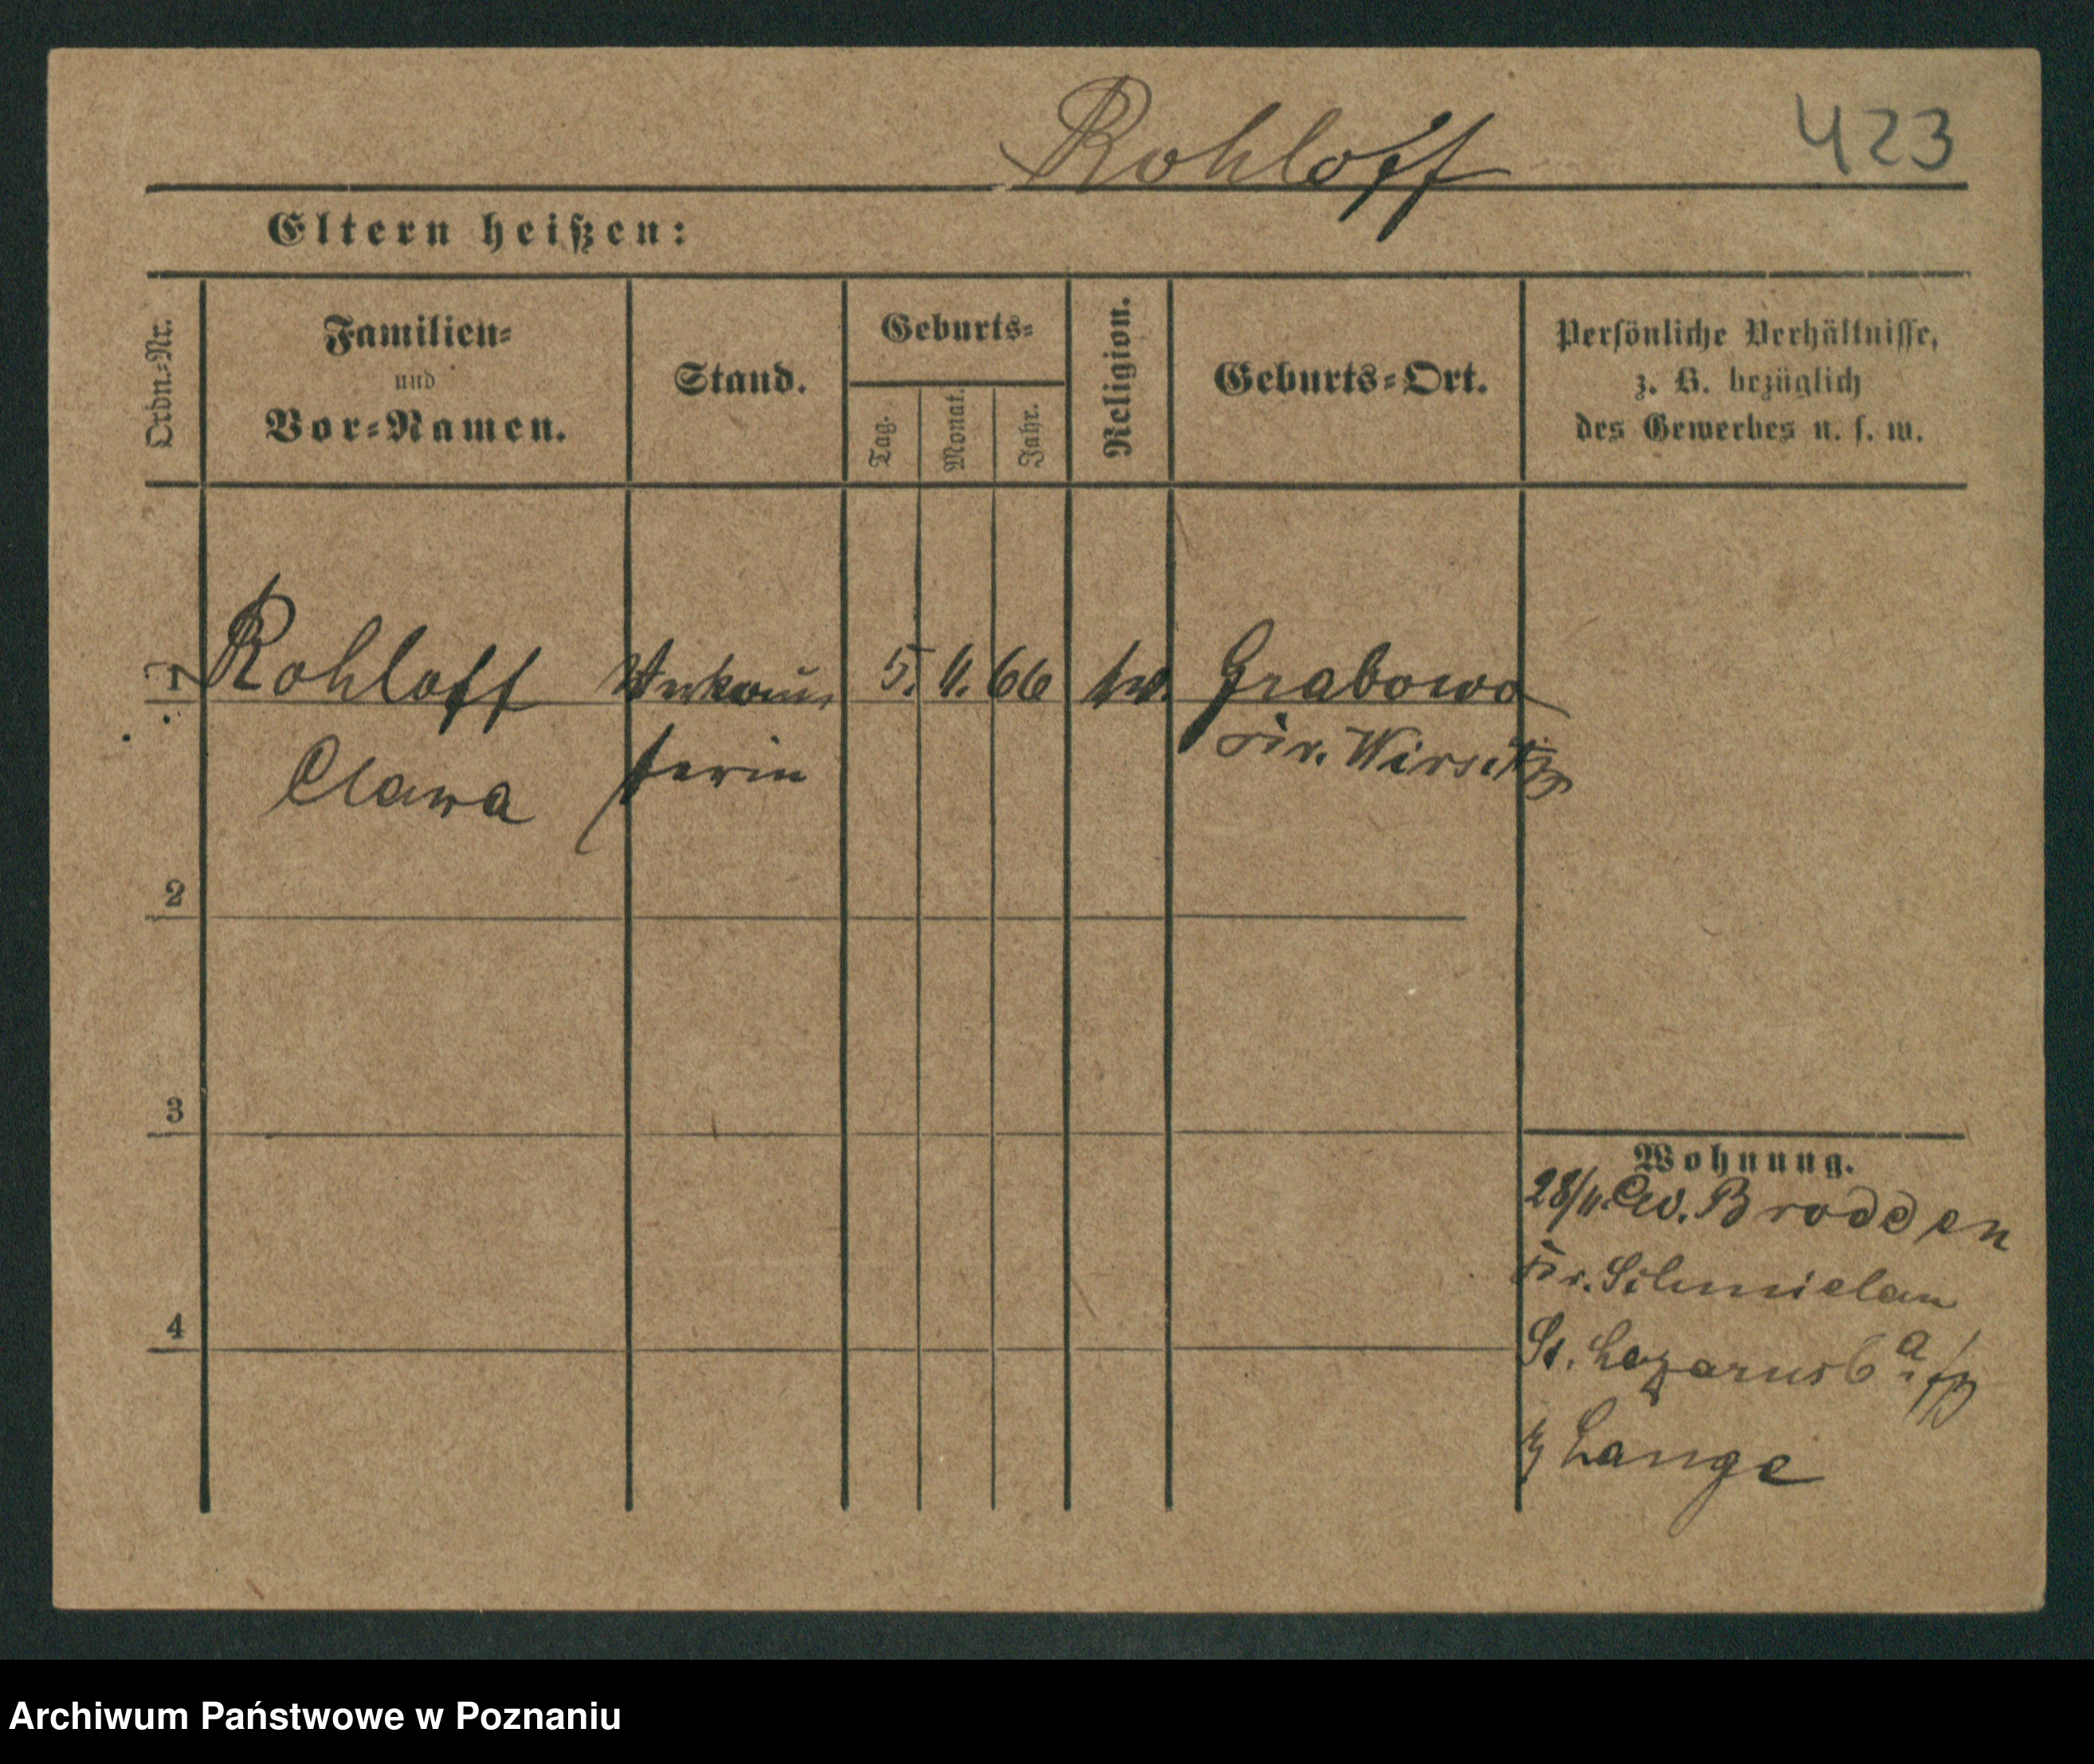 Rohloff 423
Eltern heißen:
Ordn.-Nr.
Familien-
und
Vor-Namen.
Stand.
Geburts-
Tag.
Monat.
Jahr.
Religion.
Geburts-Ort.
Persönliche Verhältnisse,
z. B. bezüglich
des Gewerbes u. s. w.
1 Rohloff Verkäu- 5. 11. 66 ev. Grabowo
Clara ferin Kr. Wirsitz
2
3
4
Wohnung.
28/11. Brodden
Kr. Schmielau
St. Lazarus 6a
Lange
Archiwum Państwowe w Poznaniu